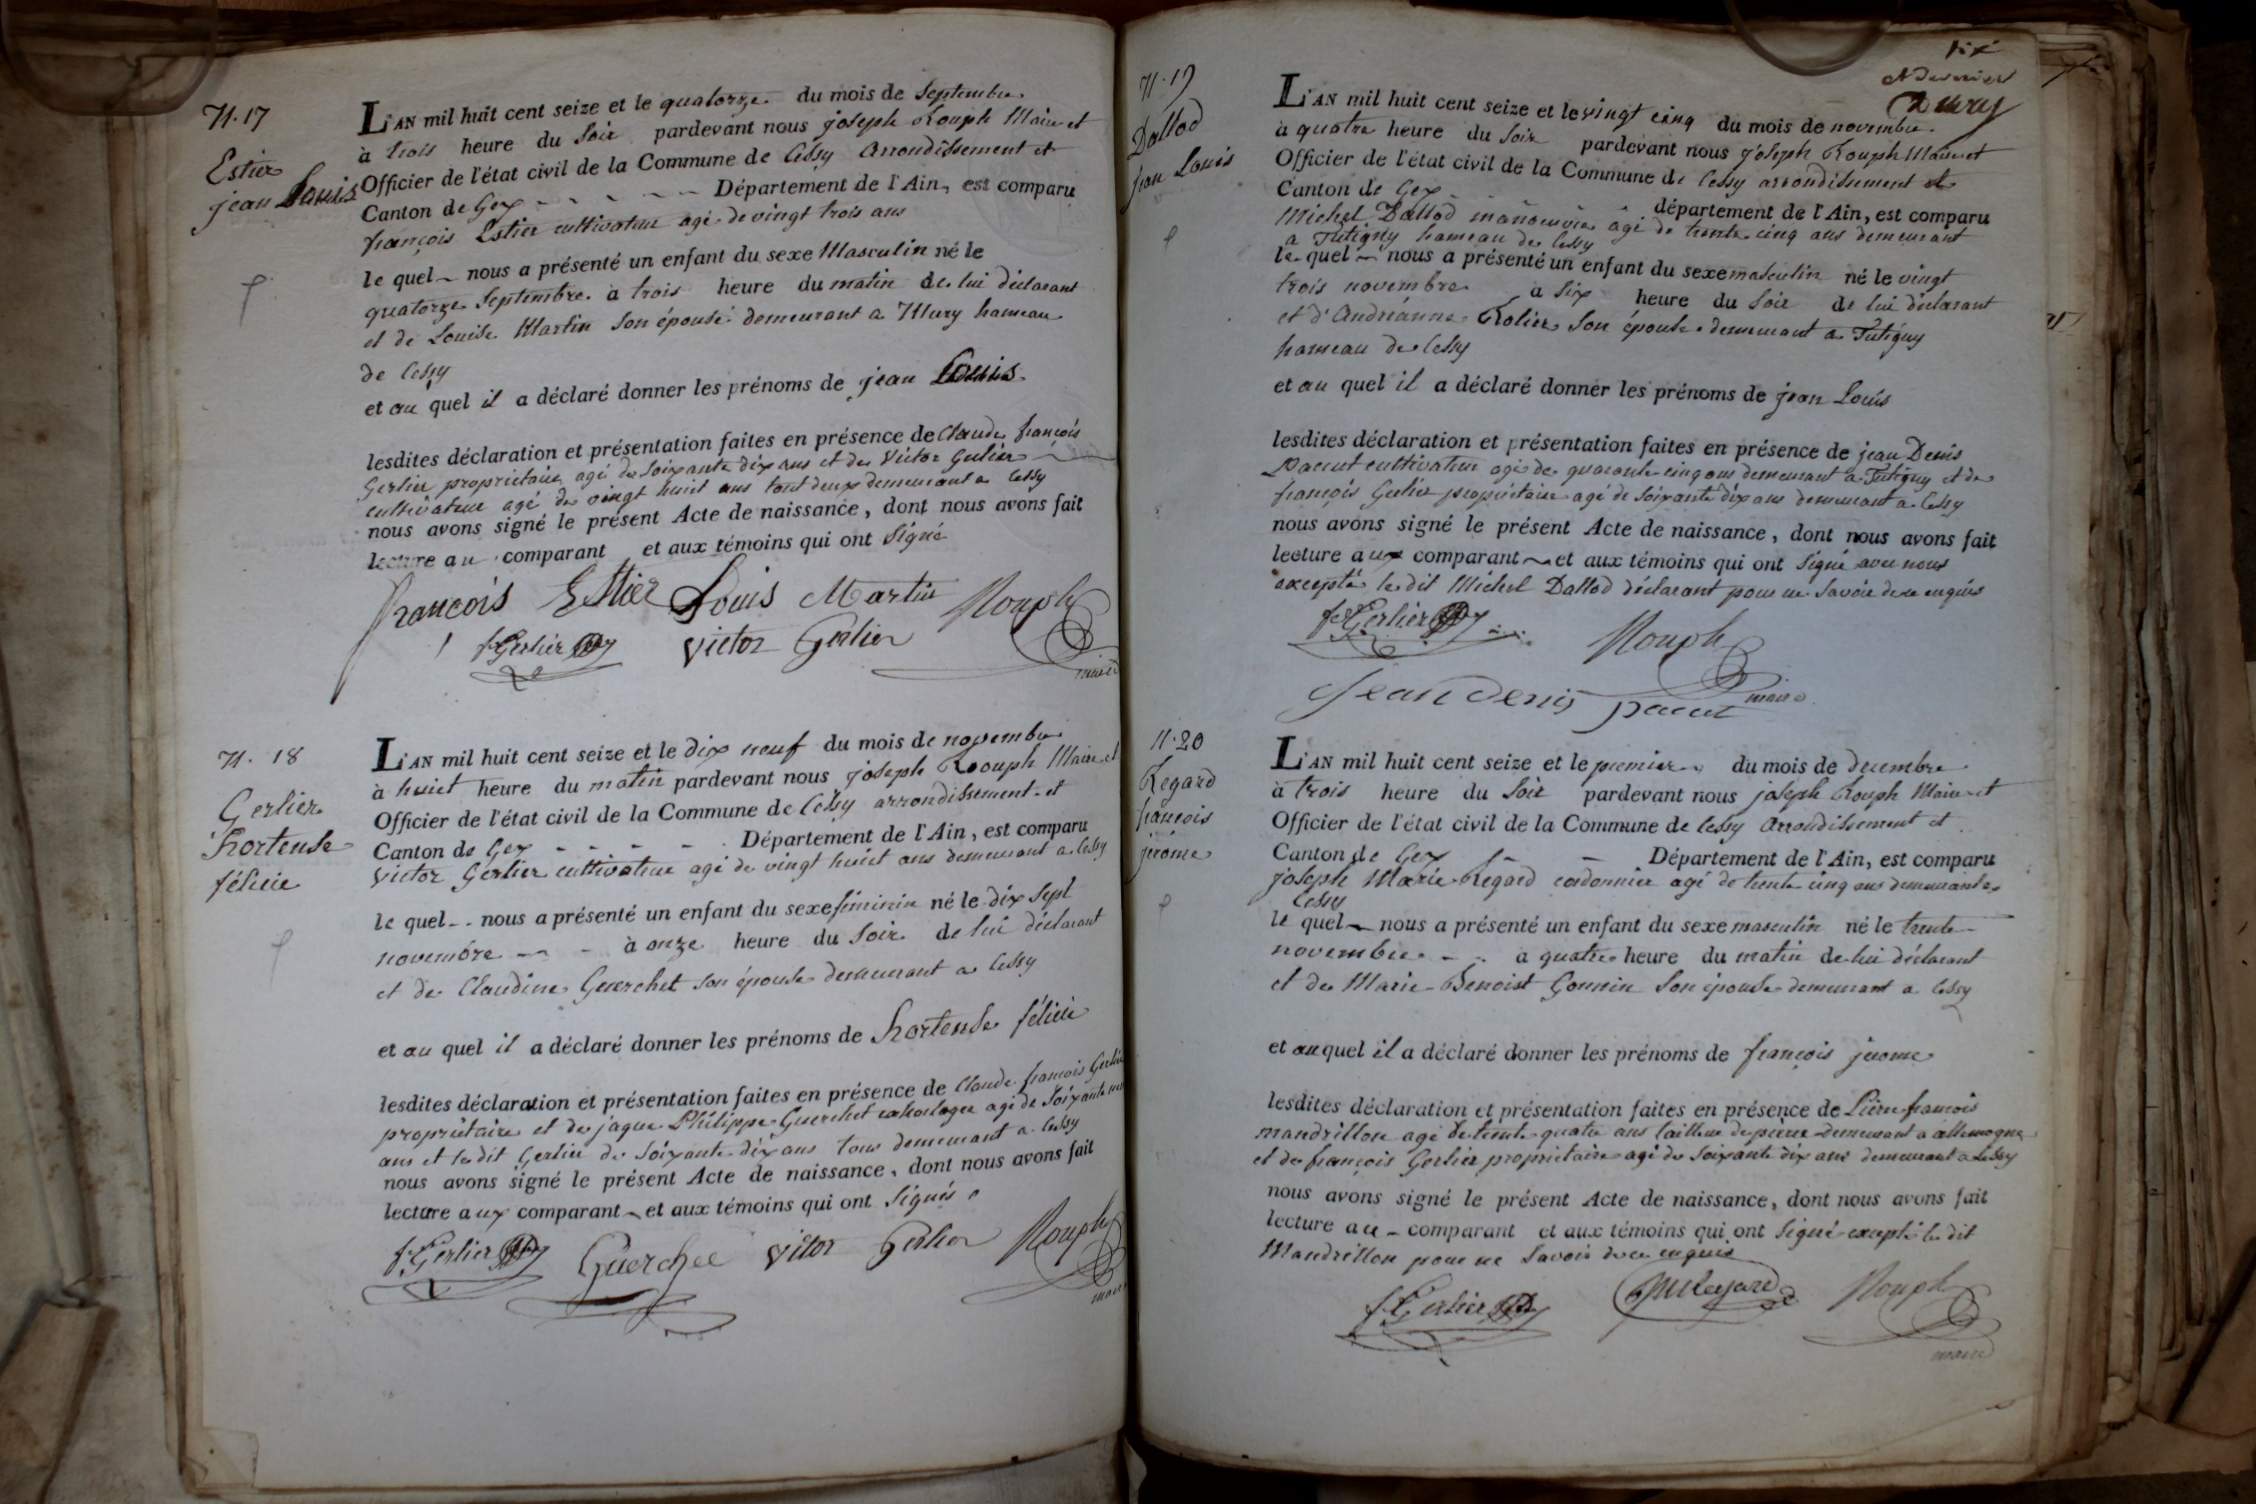 N. 17
Estier
jean Louis
L'AN mil huit cent seize et le quatorze du mois de Septembre
à trois heure du Soir pardevant nous joseph Rouph Maire et
Officier de l'état civil de la Commune de Cessy Arrondissement et
Canton de Gex - - - - - Département de l'Ain, est comparu
françois Estier cultivateur agé de vingt trois ans
le quel nous a présenté un enfant du sexe Masculin né le
quatorze Septembre à trois heure du matin de lui déclarant
et de Louise Martin son épouse demeurant a Mury hameau
de Cessy
et au quel il a déclaré donner les prénoms de jean Louis
lesdites déclaration et présentation faites en présence de Claude françois
Gerlier proprietaire agé de soixante dix ans et de Victor Gerlier
cultivateur agé de vingt huit ans tout deux demeurant a Cessy
nous avons signé le présent Acte de naissance, dont nous avons fait
lecture au comparant et aux témoins qui ont Signé
françois Estier Louis Martin Rouph
f. Gerlier Victor Gerlier maire
N. 18
Gerlier
hortense
félicie
L'AN mil huit cent seize et le dix neuf du mois de novembre
à huit heure du matin pardevant nous joseph Rouph Maire et
Officier de l'état civil de la Commune de Cessy arrondissement et
Canton de Gex - - - - Département de l'Ain, est comparu
Victor Gerlier cultivateur agé de vingt huit ans demeurant a Cessy
le quel - - nous a présenté un enfant du sexe féminin né le dix sept
novembre - - - à onze heure du Soir de lui déclarant
et de Claudine Guerchet son épouse demeurant a Cessy
et au quel il a déclaré donner les prénoms de hortense félicie
lesdites déclaration et présentation faites en présence de Claude françois Gerlier
propriétaire et de jaque Philippe Guerchet agé de soixante
ans et ledit Gerlier de soixante dix ans tous demeurant a Cessy
nous avons signé le présent Acte de naissance, dont nous avons fait
lecture aux comparant et aux témoins qui ont Signés
f. Gerlier Guerchet Victor Gerlier Rouph
maire
dix
et dernier
N. 19
Dallod
jean Louis
L'AN mil huit cent seize et le vingt cinq du mois de novembre
à quatre heure du Soir pardevant nous joseph Rouph Maire et
Officier de l'état civil de la Commune de Cessy arrondissement et
Canton de Gex - - département de l'Ain, est comparu
Michel Dallod manoeuvre agé de trente cinq ans demeurant
a Tutigny hameau de Cessy
le quel nous a présenté un enfant du sexe masculin né le vingt
trois novembre à six heure du Soir de lui déclarant
et d'Andréanne Rolier son épouse demeurant a Tutigny
hameau de Cessy
et au quel il a déclaré donner les prénoms de jean Louis
lesdites déclaration et présentation faites en présence de jean Denis
Paccut cultivateur agé de quarante cinq ans demeurant a Tutigny et de
françois Gerlier propriétaire agé de soixante dix ans demeurant a Cessy
nous avons signé le présent Acte de naissance, dont nous avons fait
lecture aux comparant et aux témoins qui ont Signé avec nous
excepté ledit Michel Dallod déclarant pour ne savoir de ce enquis
f. Gerlier Rouph
jean denis pacut maire
N. 20
Regard
françois
jérome
L'AN mil huit cent seize et le premier du mois de decembre
à trois heure du Soir pardevant nous joseph Rouph Maire et
Officier de l'état civil de la Commune de Cessy Arrondissement et
Canton de Gex - - Département de l'Ain, est comparu
joseph Marie Regard cordonnier agé de trente cinq ans demeurant a
Cessy
le quel nous a présenté un enfant du sexe masculin né le trente
novembre - - à quatre heure du matin de lui déclarant
et de Marie Benoist Gonnin son épouse demeurant a Cessy
et au quel il a déclaré donner les prénoms de françois jerome
lesdites déclaration et présentation faites en présence de Pierre françois
mandrillon agé de trente quatre ans tailleur de pierre demeurant a allemogne
et de françois Gerlier proprietaire agé de soixante dix ans demeurant a Cessy
nous avons signé le présent Acte de naissance, dont nous avons fait
lecture au - comparant et aux témoins qui ont Signé excepté le dit
Mandrillon pour ne savoir de ce enquis
f. Gerlier Regard Rouph
maire